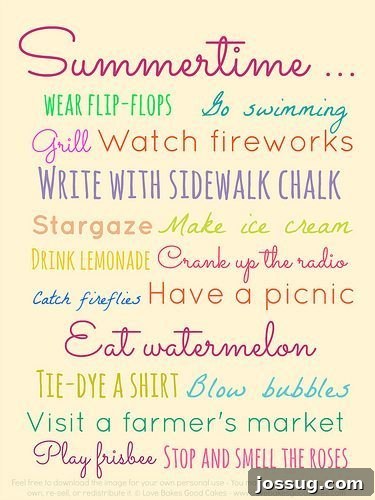 Summertime ...
WEAR FLIP-FLOPS Go swimming
Grill Watch fireworks
WRITE WITH SIDEWALK CHALK
Stargaze Make ice cream
DRINK LEMONADE Crank up the radio
Catch fireflies Have a picnic
Eat watermelon
TIE-DYE A SHIRT Blow bubbles
Visit a farmer's market
Play frisbee STOP AND SMELL THE ROSES
Feel free to download the image for your own personal use - You may
own, re-sell, or redistribute it. © Love Bakes Good Cakes -
jossug.com